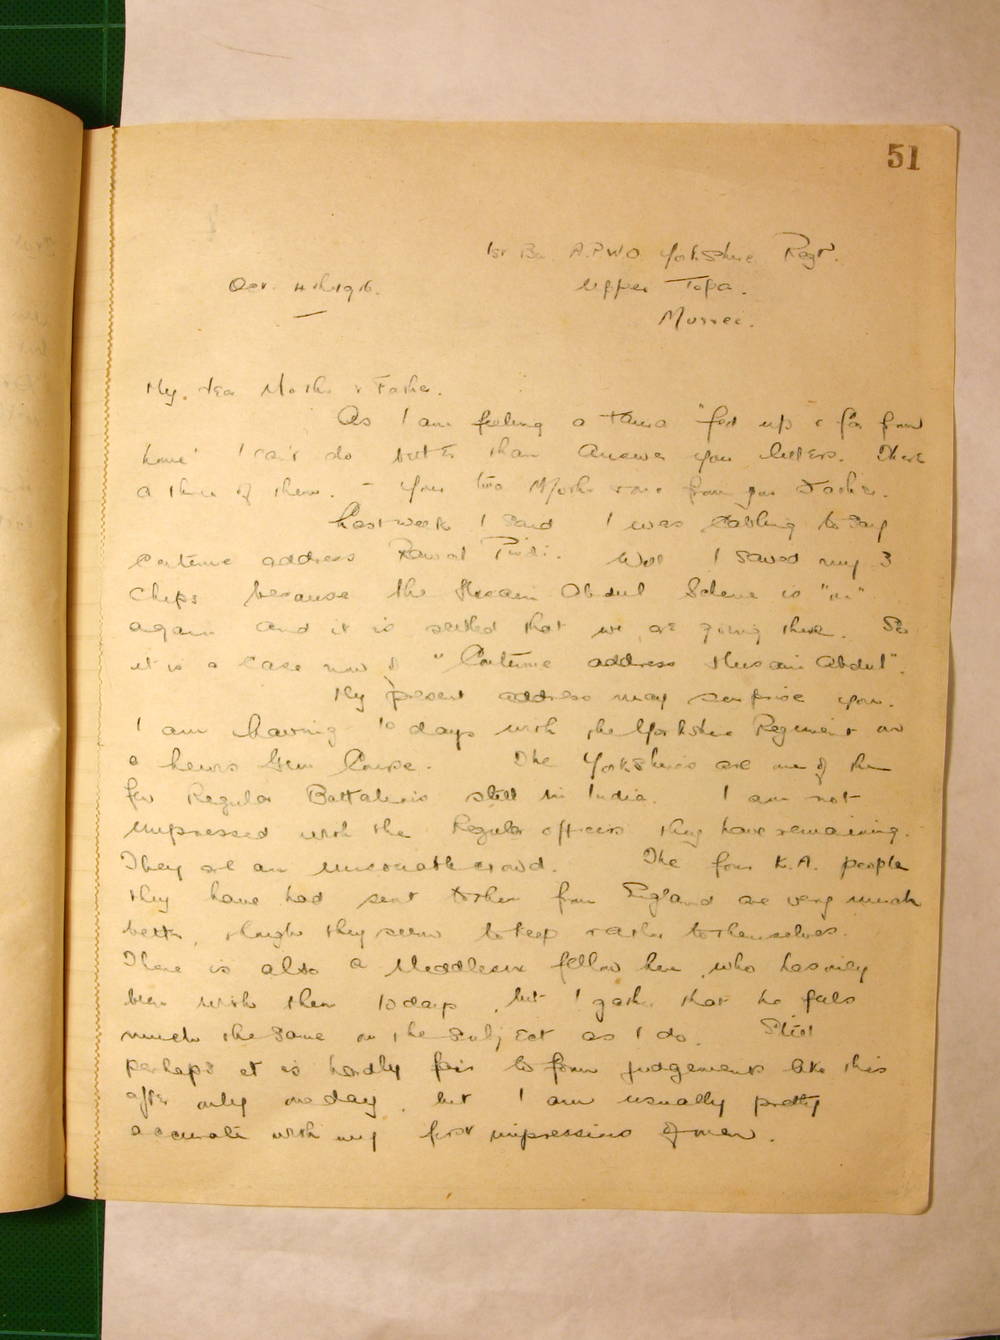 51
1st Bn. A.P.W.O. Yorkshire Regt.
Oct. 4th 1916.
Upper Topa.
Murree.
My dear Mother & Father.
As I am feeling a "fed up & far from
home" I can't do better than answer your letters. There
a three of them. - Your two Mother & one from you Father.
Last week I said I was cabling to say
Continue address Rawal Pindi. Well I saved my 3
chips because the Husain Abdul Scheme is "on"
again and it is settled that we are going there. So
it is a case now of "Continue address Husain Abdul".
My present address may surprise you.
I am having 10 days with the Yorkshire Regiment on
a Lewis Gun Course. The Yorkshires are one of the
few Regular Battalions still in India. I am not
impressed with the Regular officers they have remaining.
They are an uncouth crowd. The four K.A. people
they have had sent to them from England are very much
better, though they seem to keep rather to themselves.
There is also a Middlesex fellow here, who has only
been with them 10 days, but I gather that he feels
much the same on the subject as I do. Still
perhaps it is hardly fair to form judgements like this
after only one day, but I am usually pretty
accurate with my first impressions of men.